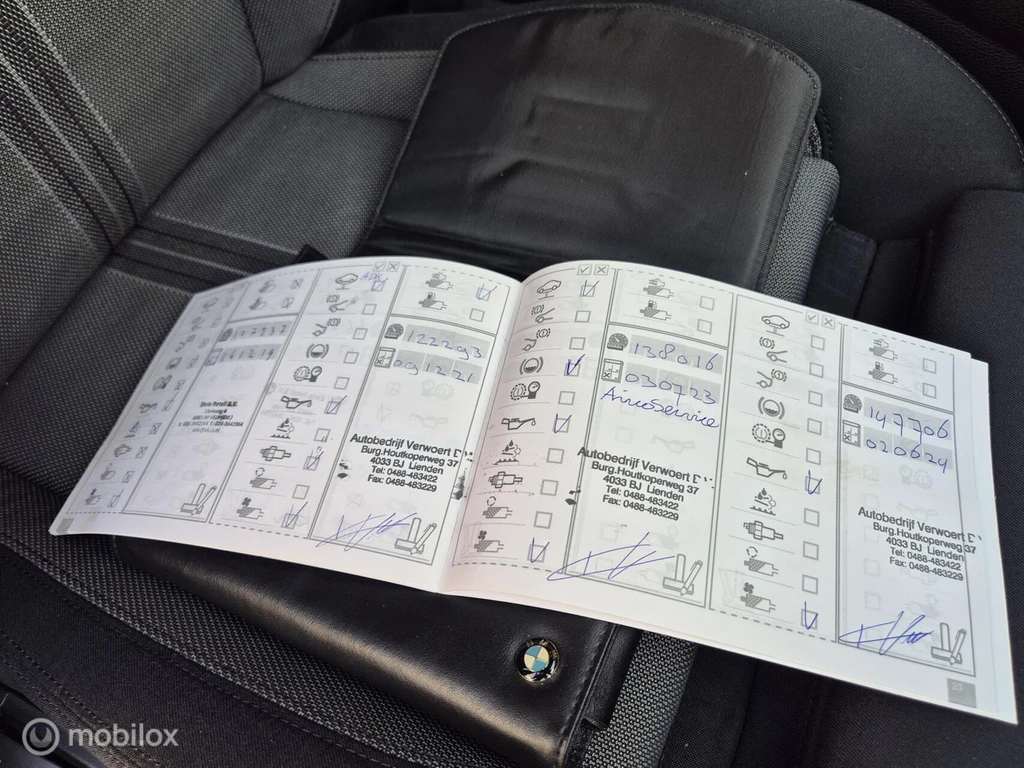 122293
091221
Autobedrijf Verwoert
Burg. Houtkoperweg 37
4033 BJ Lienden
Tel: 0488-483422
Fax: 0488-483229
138016
030723
Autobedrijf Verwoert
Burg. Houtkoperweg 37
4033 BJ Lienden
Tel: 0488-483422
Fax: 0488-483229
147706
020624
Autobedrijf Verwoert
Burg. Houtkoperweg 37
4033 BJ Lienden
Tel: 0488-483422
Fax: 0488-483229
23
mobilox